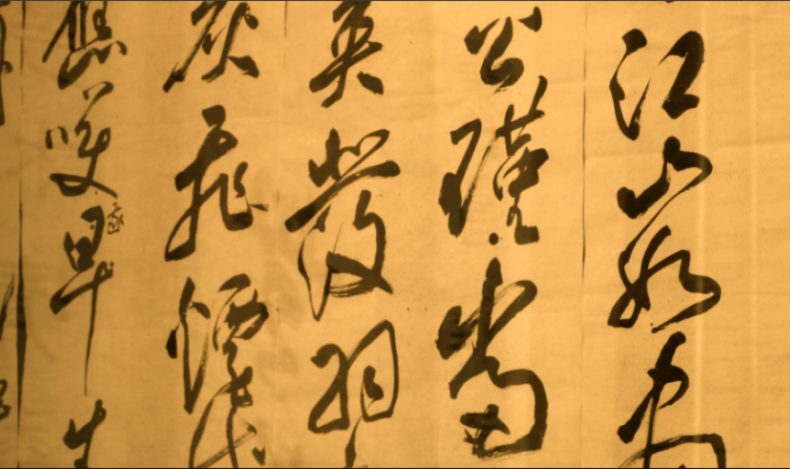 江山如畫
公瑾當
英發羽
灰飛煙
應咲早生